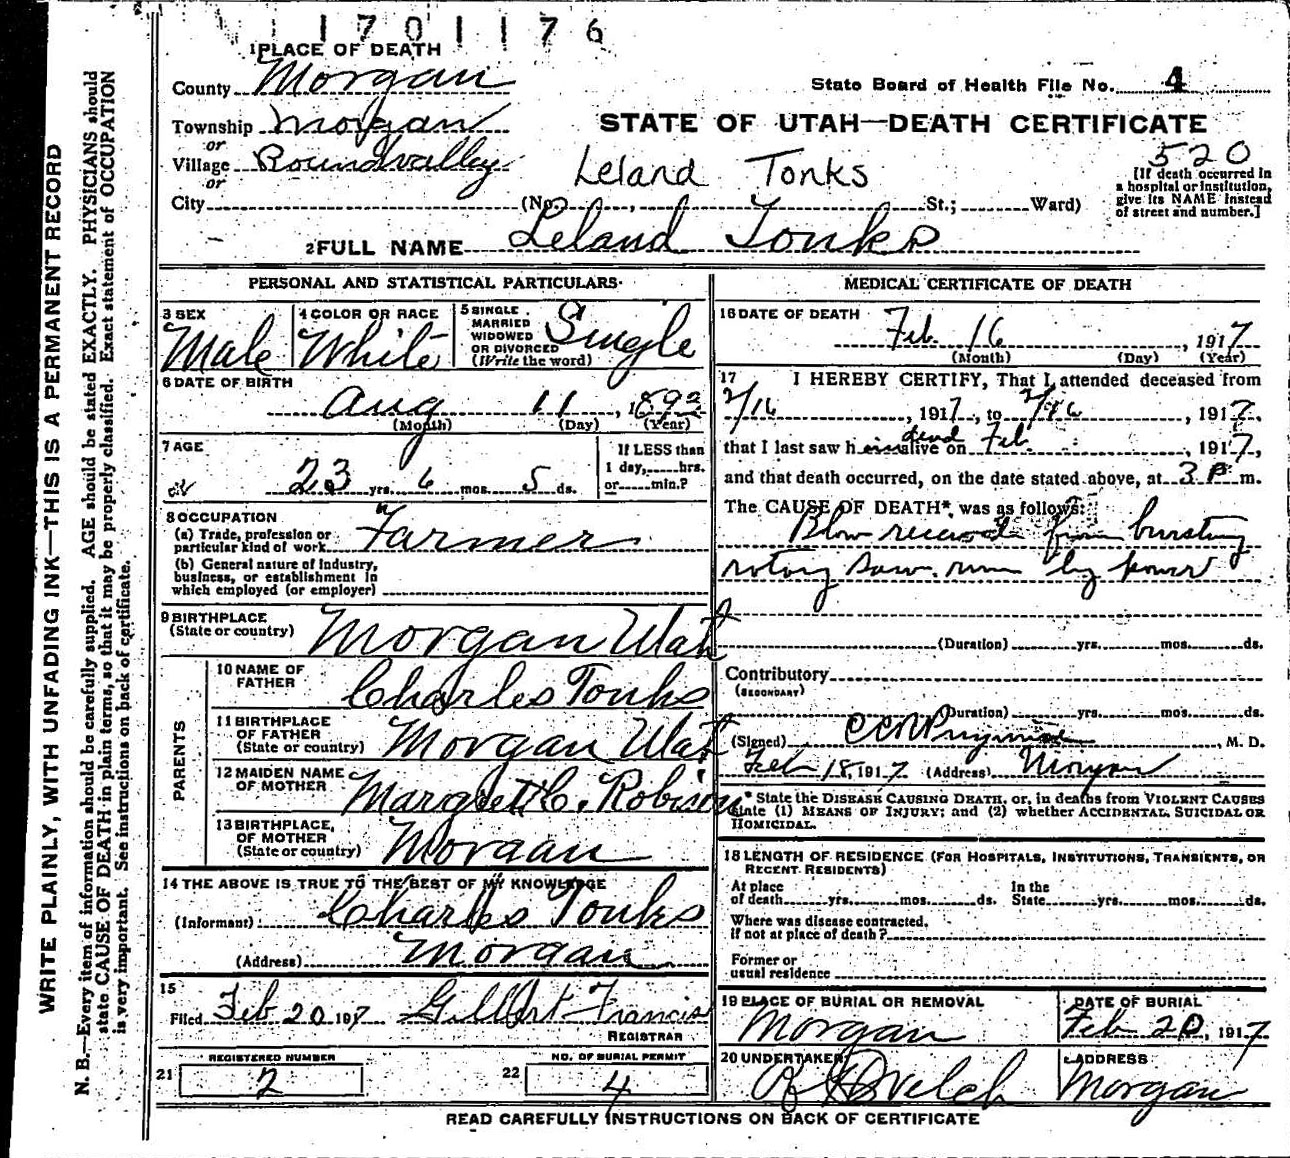 1701176
1 PLACE OF DEATH
County Morgan
State Board of Health File No. 4
Township Morgan
STATE OF UTAH—DEATH CERTIFICATE
or
Village Roundvalley
Leland Tonks
520
or
City (No. , St.; Ward)
[If death occurred in
a hospital or institution,
give its NAME instead
of street and number.]
2 FULL NAME Leland Tonks
PERSONAL AND STATISTICAL PARTICULARS
3 SEX
Male
4 COLOR OR RACE
White
5 SINGLE,
MARRIED
WIDOWED
OR DIVORCED
(Write the word)
Single
6 DATE OF BIRTH
Aug 11, 1893
(Month) (Day) (Year)
7 AGE
23 yrs. 6 mos. 5 ds.
If LESS than
1 day, hrs.
or min.?
8 OCCUPATION
(a) Trade, profession or
particular kind of work Farmer
(b) General nature of industry,
business, or establishment in
which employed (or employer)
9 BIRTHPLACE
(State or country) Morgan Utah
PARENTS
10 NAME OF
FATHER Charles Tonks
11 BIRTHPLACE
OF FATHER
(State or country) Morgan Utah
12 MAIDEN NAME
OF MOTHER Margrett C. Robison
13 BIRTHPLACE,
OF MOTHER
(State or country) Morgan
14 THE ABOVE IS TRUE TO THE BEST OF MY KNOWLEDGE
(Informant) Charles Tonks
(Address) Morgan
15
Filed Feb 20 1917 Gilbert Francis
REGISTRAR
REGISTERED NUMBER
21 2
NO. OF BURIAL PERMIT
22 4
MEDICAL CERTIFICATE OF DEATH
16 DATE OF DEATH
Feb. 16, 1917
(Month) (Day) (Year)
17 I HEREBY CERTIFY, That I attended deceased from
2/16, 1917, to 2/16, 1917.
that I last saw him alive dead on Feb., 1917,
and that death occurred, on the date stated above, at 3 P m.
The CAUSE OF DEATH*, was as follows:
Blow received from bursting
rotary saw. run by power
(Duration) yrs. mos. ds.
Contributory
(SECONDARY)
(Duration) yrs. mos. ds.
(Signed) , M. D.
Feb 18, 1917 (Address) Morgan
* State the DISEASE CAUSING DEATH, or, in deaths from VIOLENT CAUSES
state (1) MEANS OF INJURY; and (2) whether ACCIDENTAL, SUICIDAL OR
HOMICIDAL.
18 LENGTH OF RESIDENCE (FOR HOSPITALS, INSTITUTIONS, TRANSIENTS, OR
RECENT RESIDENTS)
At place
of death yrs. mos. ds.
In the
State yrs. mos. ds.
Where was disease contracted,
if not at place of death?
Former or
usual residence
19 PLACE OF BURIAL OR REMOVAL
Morgan
DATE OF BURIAL
Feb 20, 1917
20 UNDERTAKER
Welch
ADDRESS
Morgan
READ CAREFULLY INSTRUCTIONS ON BACK OF CERTIFICATE
WRITE PLAINLY, WITH UNFADING INK—THIS IS A PERMANENT RECORD
N. B.—Every item of information should be carefully supplied. AGE should be stated EXACTLY. PHYSICIANS should
state CAUSE OF DEATH in plain terms, so that it may be properly classified. Exact statement of OCCUPATION
is very important. See instructions on back of certificate.